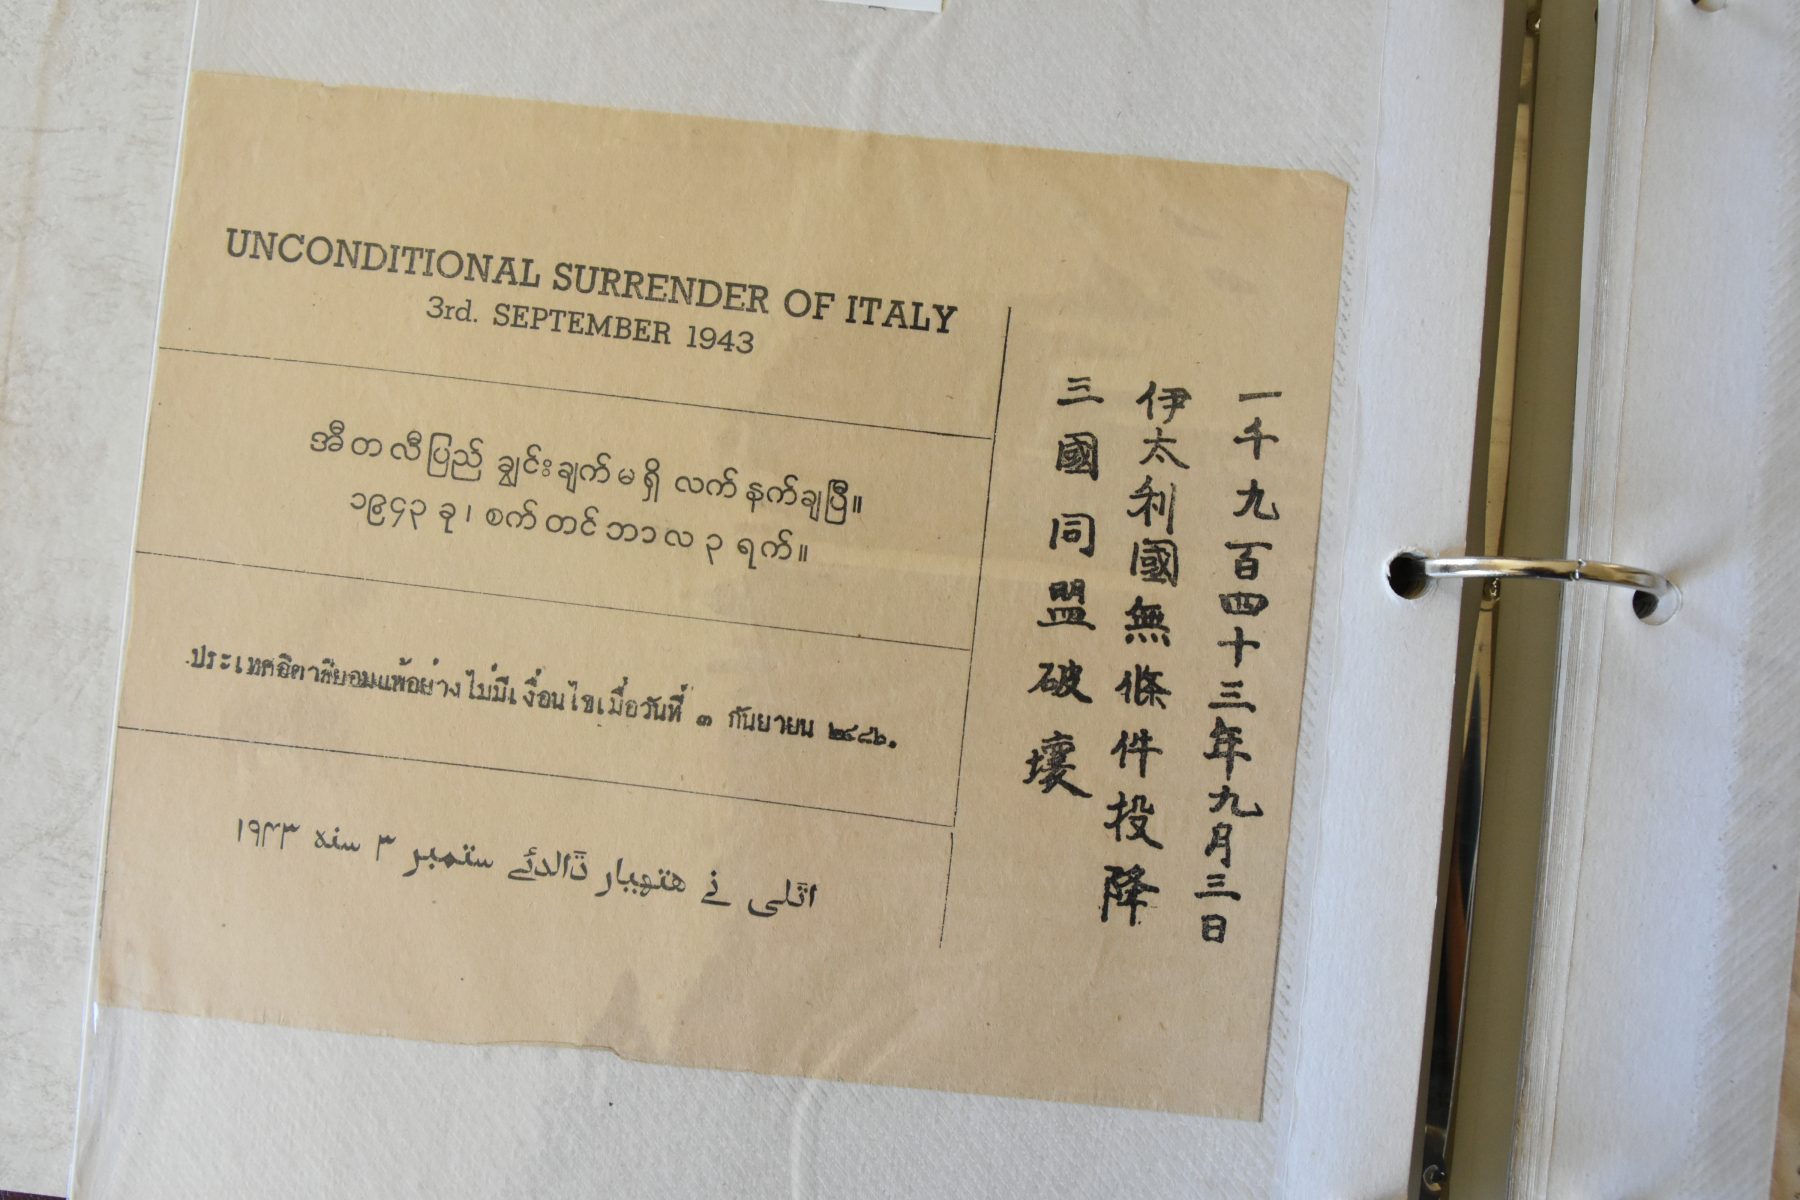 UNCONDITIONAL SURRENDER OF ITALY
3rd. SEPTEMBER 1943
အီတလီပြည် ချွင်းချက်မရှိ လက်နက်ချပြီ။
၁၉၄၃ ခု၊ စက်တင်ဘာလ ၃ ရက်။
ประเทศอิตาลียอมแพ้อย่างไม่มีเงื่อนไขเมื่อวันที่ ๓ กันยายน ๒๔๘๖.
اٹلی نے ہتھیار ڈالدئے ستمبر ۳ سنہ ۱۹۴۳
一千九百四十三年九月三日
伊太利國無條件投降
三國同盟破壞